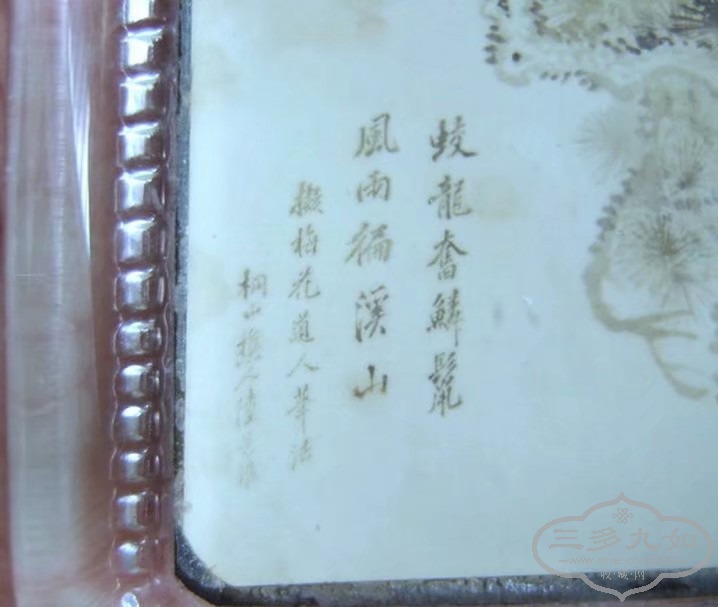 蛟龍奮鱗鬣
風雨徧溪山
擬梅花道人筆法
桐山樵人陸
三多九如
收藏网